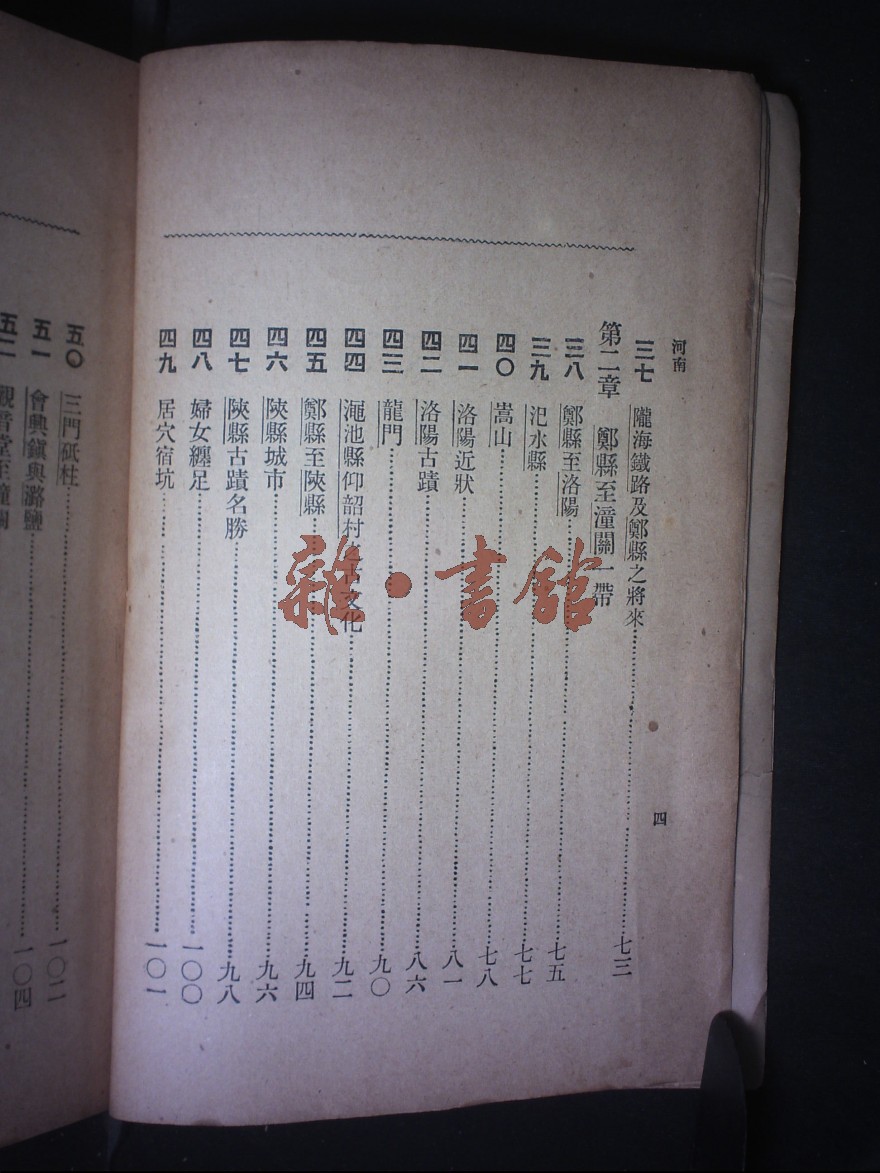 河南
四
三七 隴海鐵路及鄭縣之將來 七三
第二章 鄭縣至潼關一帶
三八 鄭縣至洛陽 七五
三九 汜水縣 七七
四〇 嵩山 七八
四一 洛陽近狀 八一
四二 洛陽古蹟 八六
四三 龍門 九〇
四四 澠池縣仰韶村之古文化 九二
四五 鄭縣至陝縣 九四
四六 陝縣城市 九六
四七 陝縣古蹟名勝 九八
四八 婦女纏足 一〇〇
四九 居穴宿坑 一〇一
五〇 三門砥柱 一〇二
五一 會興鎮與潞鹽 一〇四
五二 觀音堂至潼關
雜·書館